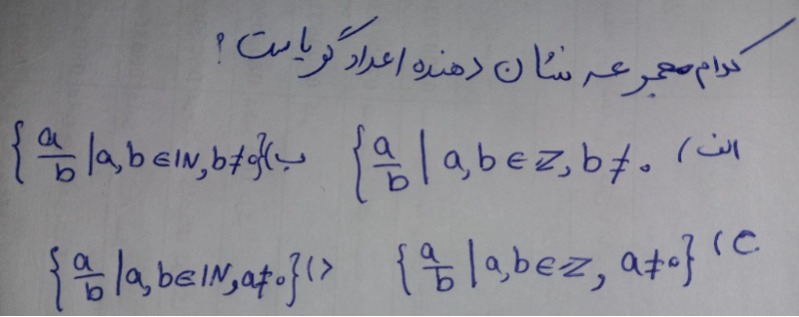 کدام مجموعه نشان دهنده اعداد گویاست؟
الف) {a/b | a,b ∈ Z, b ≠ 0 ب) {a/b | a,b ∈ IN, b ≠ 0}
ج) {a/b | a,b ∈ Z, a ≠ 0} د) {a/b | a,b ∈ IN, a ≠ 0}